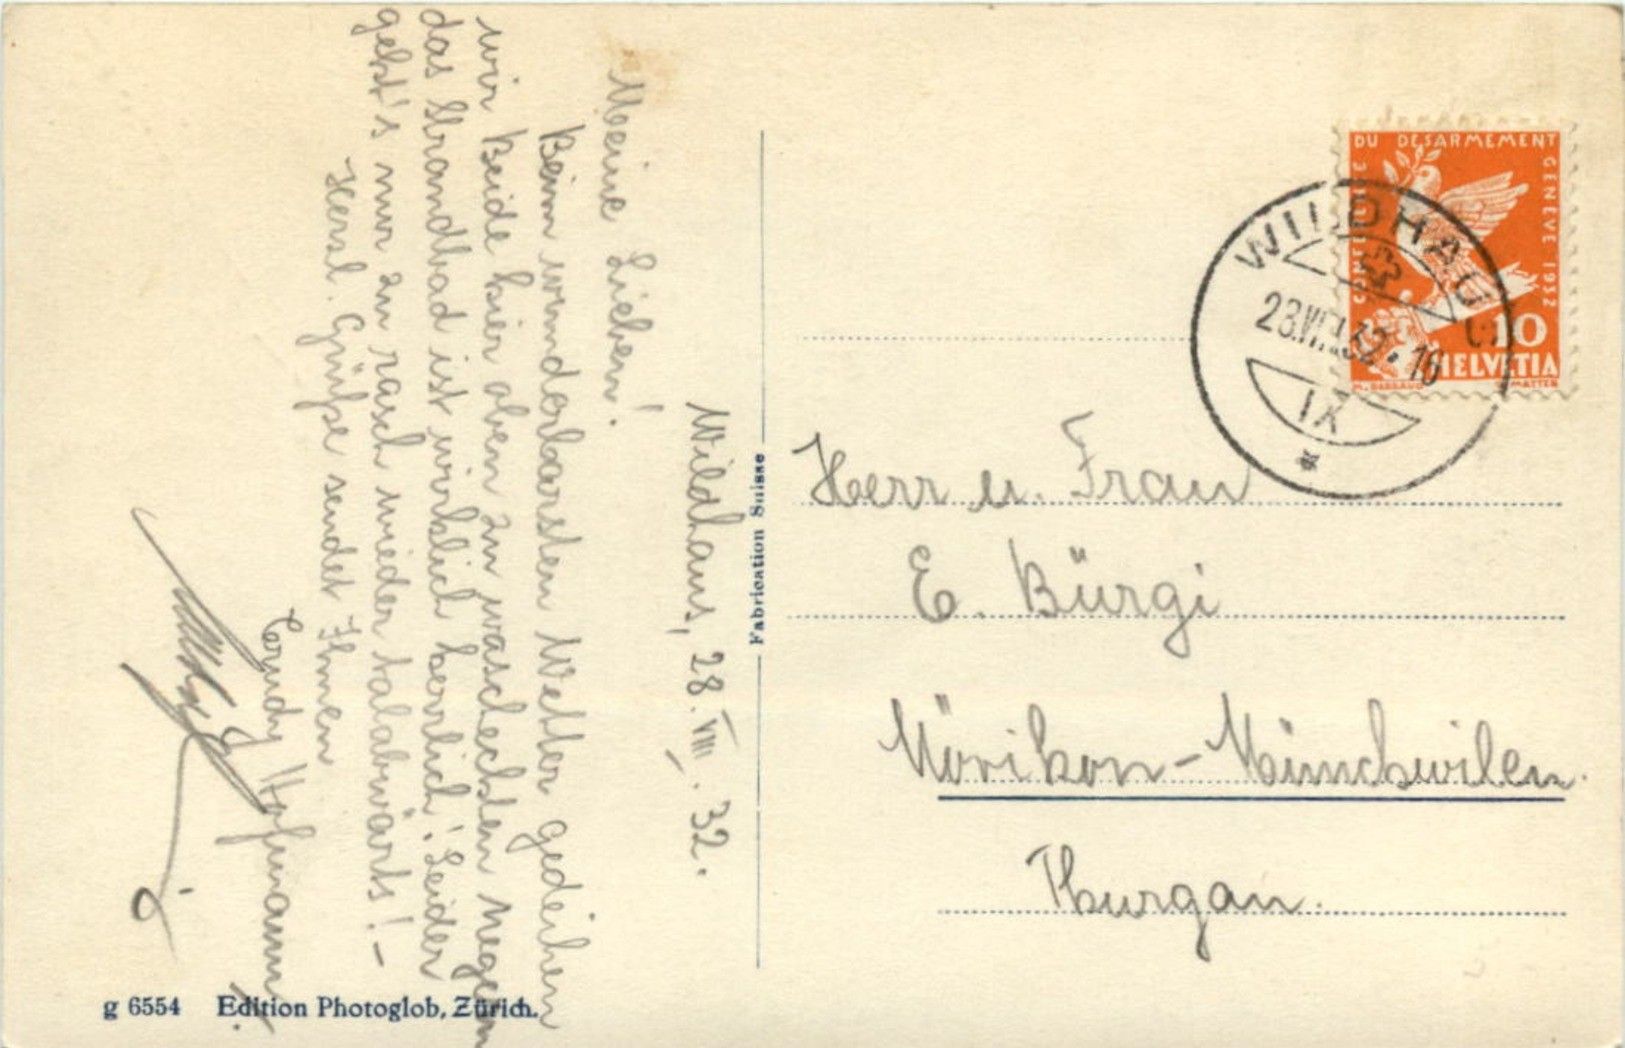 Wildhaus, 28. VIII. 32.
Meine Lieben!
Beim wunderbarsten Wetter gedeihen
wir Beide hier oben zu waschechten Negern
das Strandbad ist wirklich herrlich! Leider
geht's nur zu rasch wieder talabwärts! –
Herzl. Grüße sendet Ihnen
Trudy Hofmann.
Fabrication Suisse
g 6554 Edition Photoglob, Zürich.
CONFERENCE DU DESARMEMENT GENEVE 1932
10
HELVETIA
WILDHAUS
28.VIII.32.16
IX
Herr u. Frau
E. Bürgi
Mörikon - Münchwilen.
Thurgau.